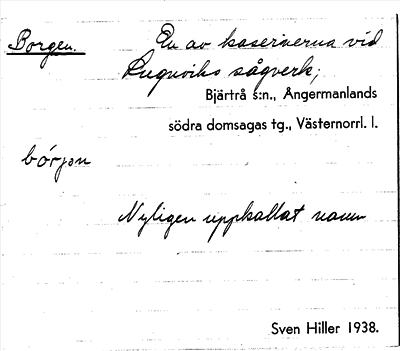 Borgen. En av kasernerna vid
Lugnviks sågverk;
Bjärtrå s:n., Ångermanlands
södra domsagas tg., Västernorrl. l.
bórjan
Nyligen uppkallat namn
Sven Hiller 1938.